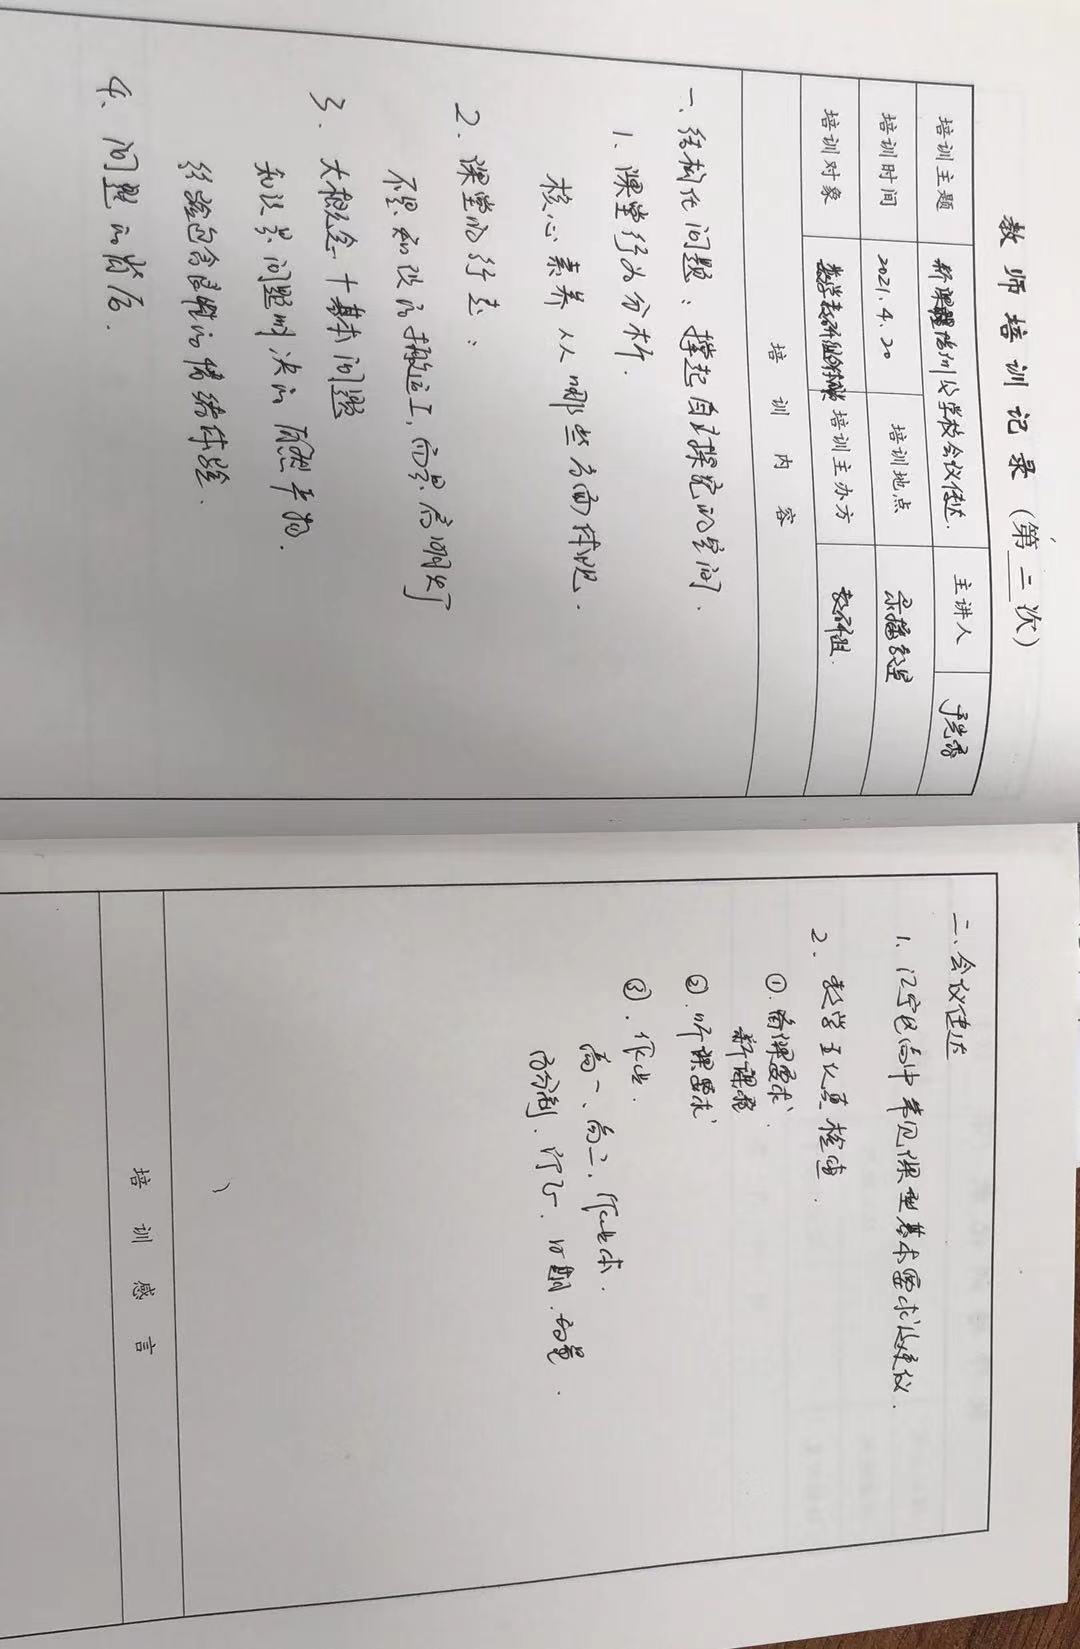 教师培训记录（第二次）
培训主题 新课程培训及学校会议传达. 主讲人
培训时间 2021.4.20 培训地点 录播教室
培训对象 数学教研组 培训主办方 教研组.
培训内容
一、结构化问题：撑起自主探究的空间.
1、课堂行为分析.
核心素养从哪些方面体现.
2.课堂的行走：
不是知识的搬运工，而是启明灯
3.大概念+基本问题
知识是问题解决的 产物.
经验包含直观的情绪体验.
4、问题的背后.
二、会议传达
1、江宁区高中常见课型基本要求及建议.
2、教学五认真检查.
①.备课要求.
新课程
②.听课要求
③.作业.
高一、高二，作业本.
 订正.日期.
培训感言